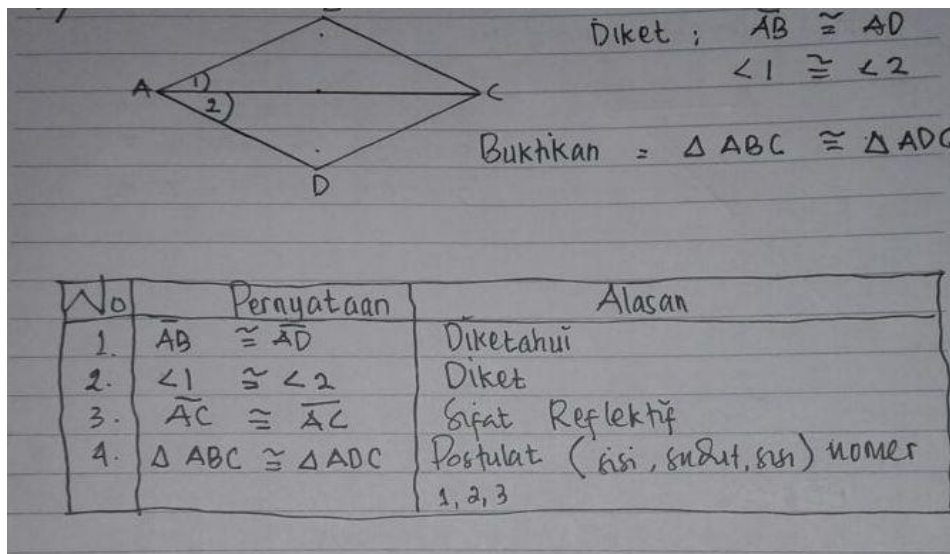 Diket : AB ≅ AD
<1 ≅ <2
Buktikan = △ ABC ≅ △ ADC
A
1
2
C
D
No Pernyataan Alasan
1. AB ≅ AD Diketahui
2. <1 ≅ <2 Diket
3. AC ≅ AC Sifat Reflektif
4. △ ABC ≅ △ ADC Postulat (sisi, sudut, sisi) nomer
1, 2, 3